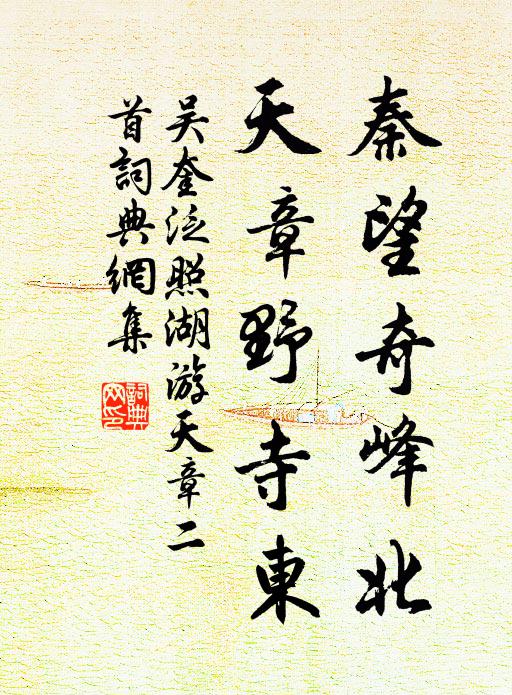 秦望奇峰北
天章野寺東
吴奎泛照湖游天章二
首詞典網集
詞典
网印